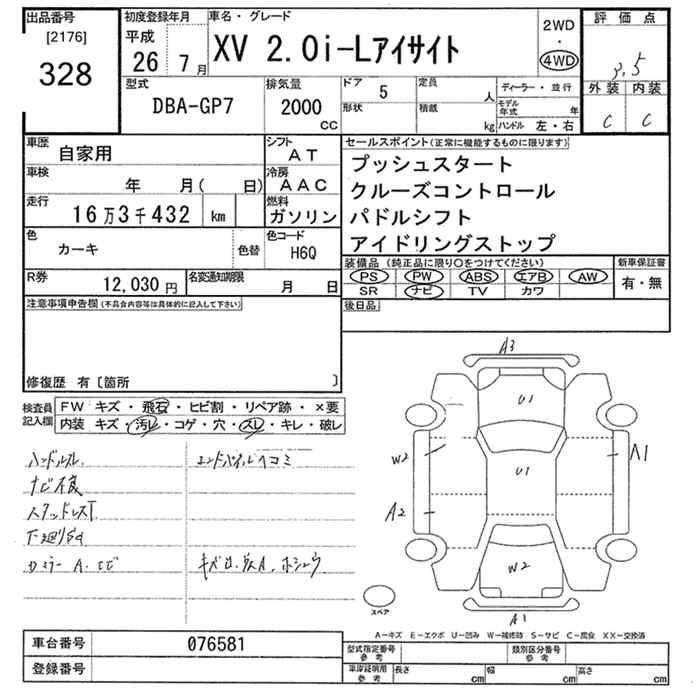 出品番号 初度登録年月 車名・グレード 2WD 評価点
[2176] 平成
328 26 7月 XV 2.0i-Lアイサイト ・ 4WD 3.5
型式 排気量 ドア 5 定員 人 ディーラー・並行 外装 内装
DBA-GP7 2000 CC 形状 積載 kg モデル年式 年 C C
ハンドル 左・右
車歴 自家用 シフト AT セールスポイント(正常に機能するものに限ります)
車検 年 月( 日) 冷房 AAC プッシュスタート
クルーズコントロール
走行 16万3千432 km 燃料 ガソリン パドルシフト
色 カーキ 色替 色コード H6Q アイドリングストップ
装備品(純正品に限り○をつけてください) 新車保証書
R券 12,030円 名変通知期限 月 日 PS PW ABS エアB AW 有・無
SR ナビ TV カワ
注意事項申告欄(不具合内容等は具体的に記入して下さい) 後日品
修復歴 有〔箇所 〕
検査員記入欄 FW キズ・飛石・ヒビ割・リペア跡・×要
内装 キズ・汚レ・コゲ・穴・スレ・キレ・破レ
A3
U1
ハンドルスレ エンドパイプルヘコミ W2 U1 A1
ナビ不良
スタッドレスT A2
下廻りサビ
W2
スペア A1
A-キズ E-エクボ U-凹み W-補修跡 S-サビ C-腐食 XX-交換済
車台番号 076581 型式指定番号 参考 類別区分番号 参考
登録番号 車庫証明用 参考 長さ cm 幅 cm 高さ cm